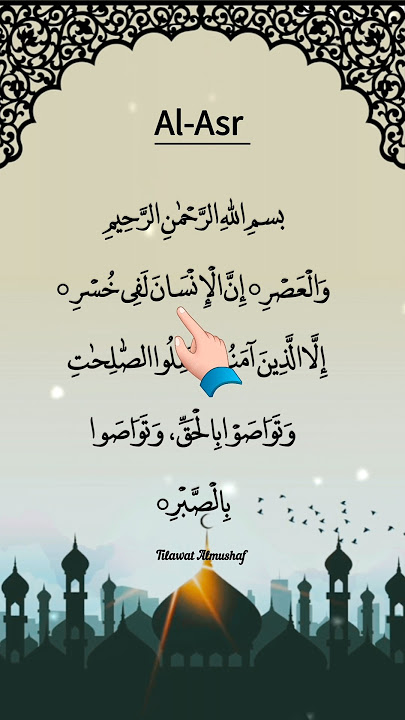 Al-Asr
بِسْمِ اللهِ الرَّحْمٰنِ الرَّحِيْمِ
وَالْعَصْرِ ○ إِنَّ الْإِنْسَانَ لَفِى خُسْرٍ ○
إِلَّا الَّذِينَ الصّٰلِحٰتِ
وَتَوَاصَوْا بِالْحَقِّ، وَتَوَاصَوا
بِالْصَّبْرِ ○
Tilawat Almushaf